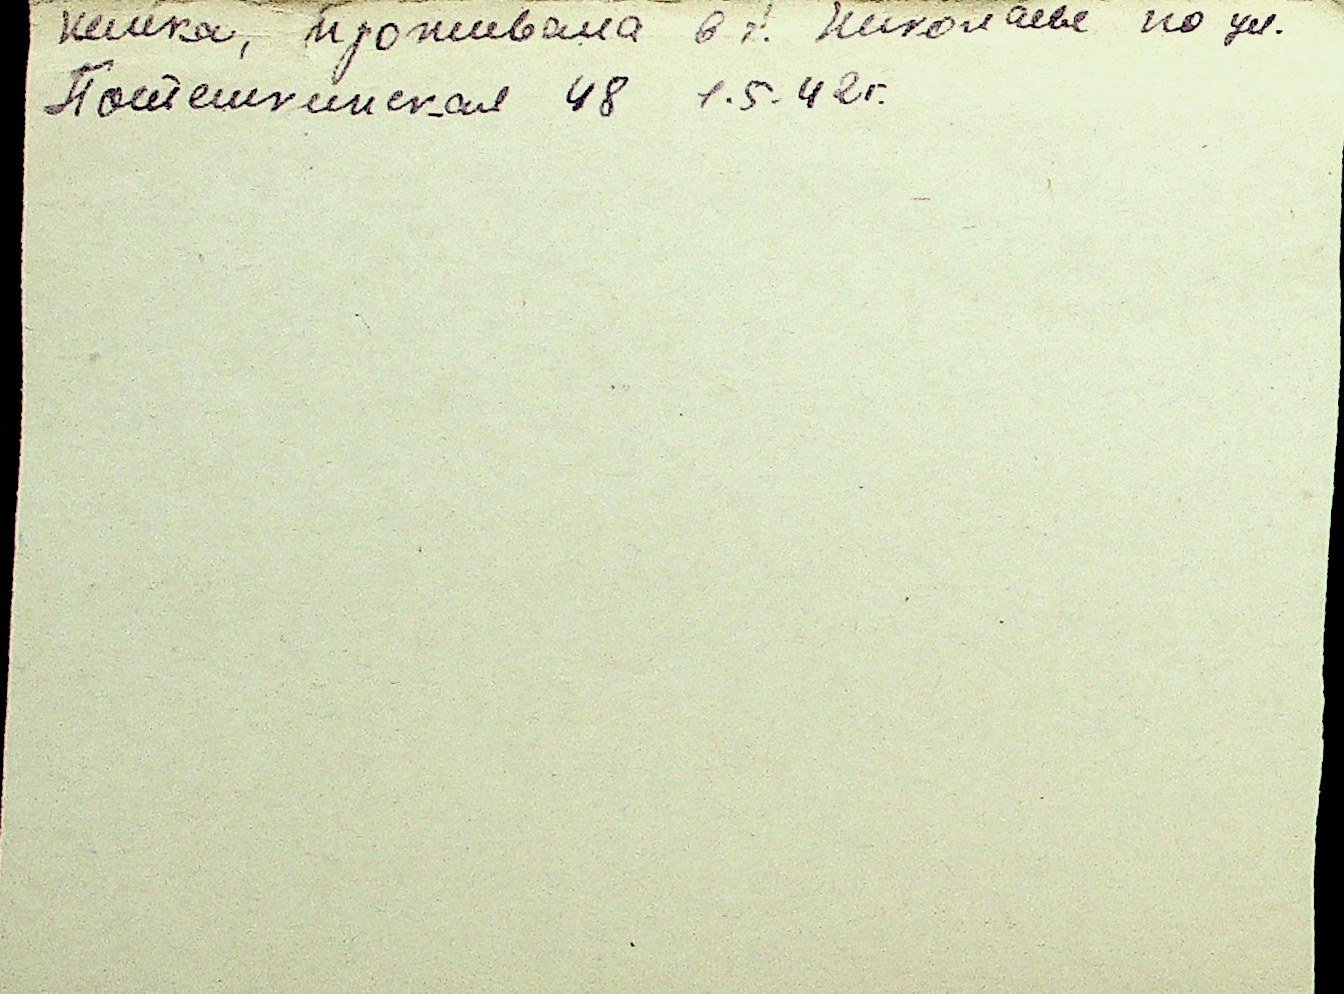 немка, проживала в г. Николаеве по ул.
Потемкинская 48 1.5.42г.